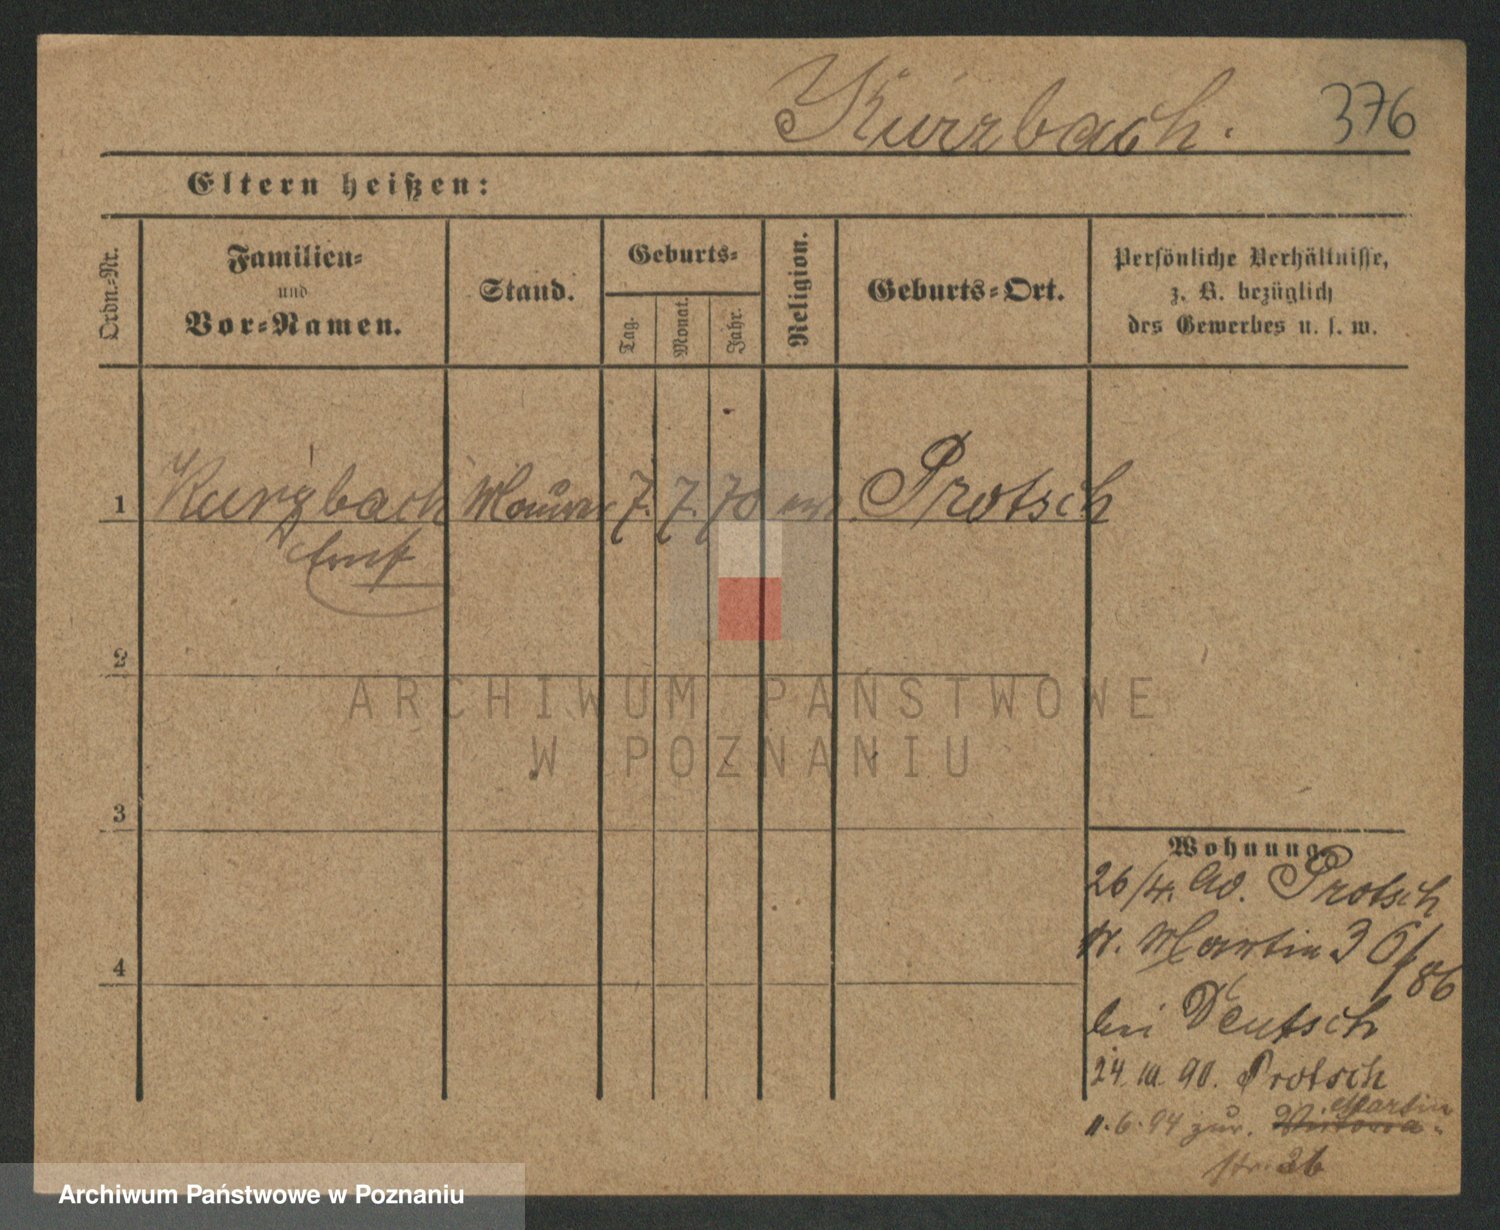 Kurzbach. 376
Eltern heißen:
Ordn.-Nr.
Familien-
und
Vor-Namen.
Stand.
Geburts-
Tag.
Monat.
Jahr.
Religion.
Geburts-Ort.
Persönliche Verhältnisse,
z. B. bezüglich
des Gewerbes u. s. w.
1 Kurzbach Maurer 7. 7. 70 Protsch
Ernst
2
3
4
Wohnung
26/4. 90. Protsch
Martin 36/86
bei Deutsch
24. 10. 90. Protsch
Martin
11.6.94 zur. Victoria-
str. 26
ARCHIWUM PAŃSTWOWE
W POZNANIU
Archiwum Państwowe w Poznaniu